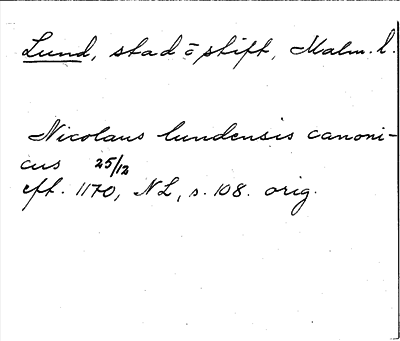 Lund, stad o stift, Malm. l.
Nicolaus lundensis canoni-
cus 25/12
eft. 1170, NL, s. 108. orig.